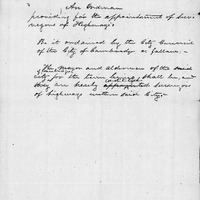 An Ordinance
providing for the appointment of Sur-
veyors of Highways.
Be it ordained by the City Council
of the City of Cambridge as follows:-
The Mayor and Aldermen of the said
City for the time being shall be, and
they are hereby appointed surveyors
of highways within said City.